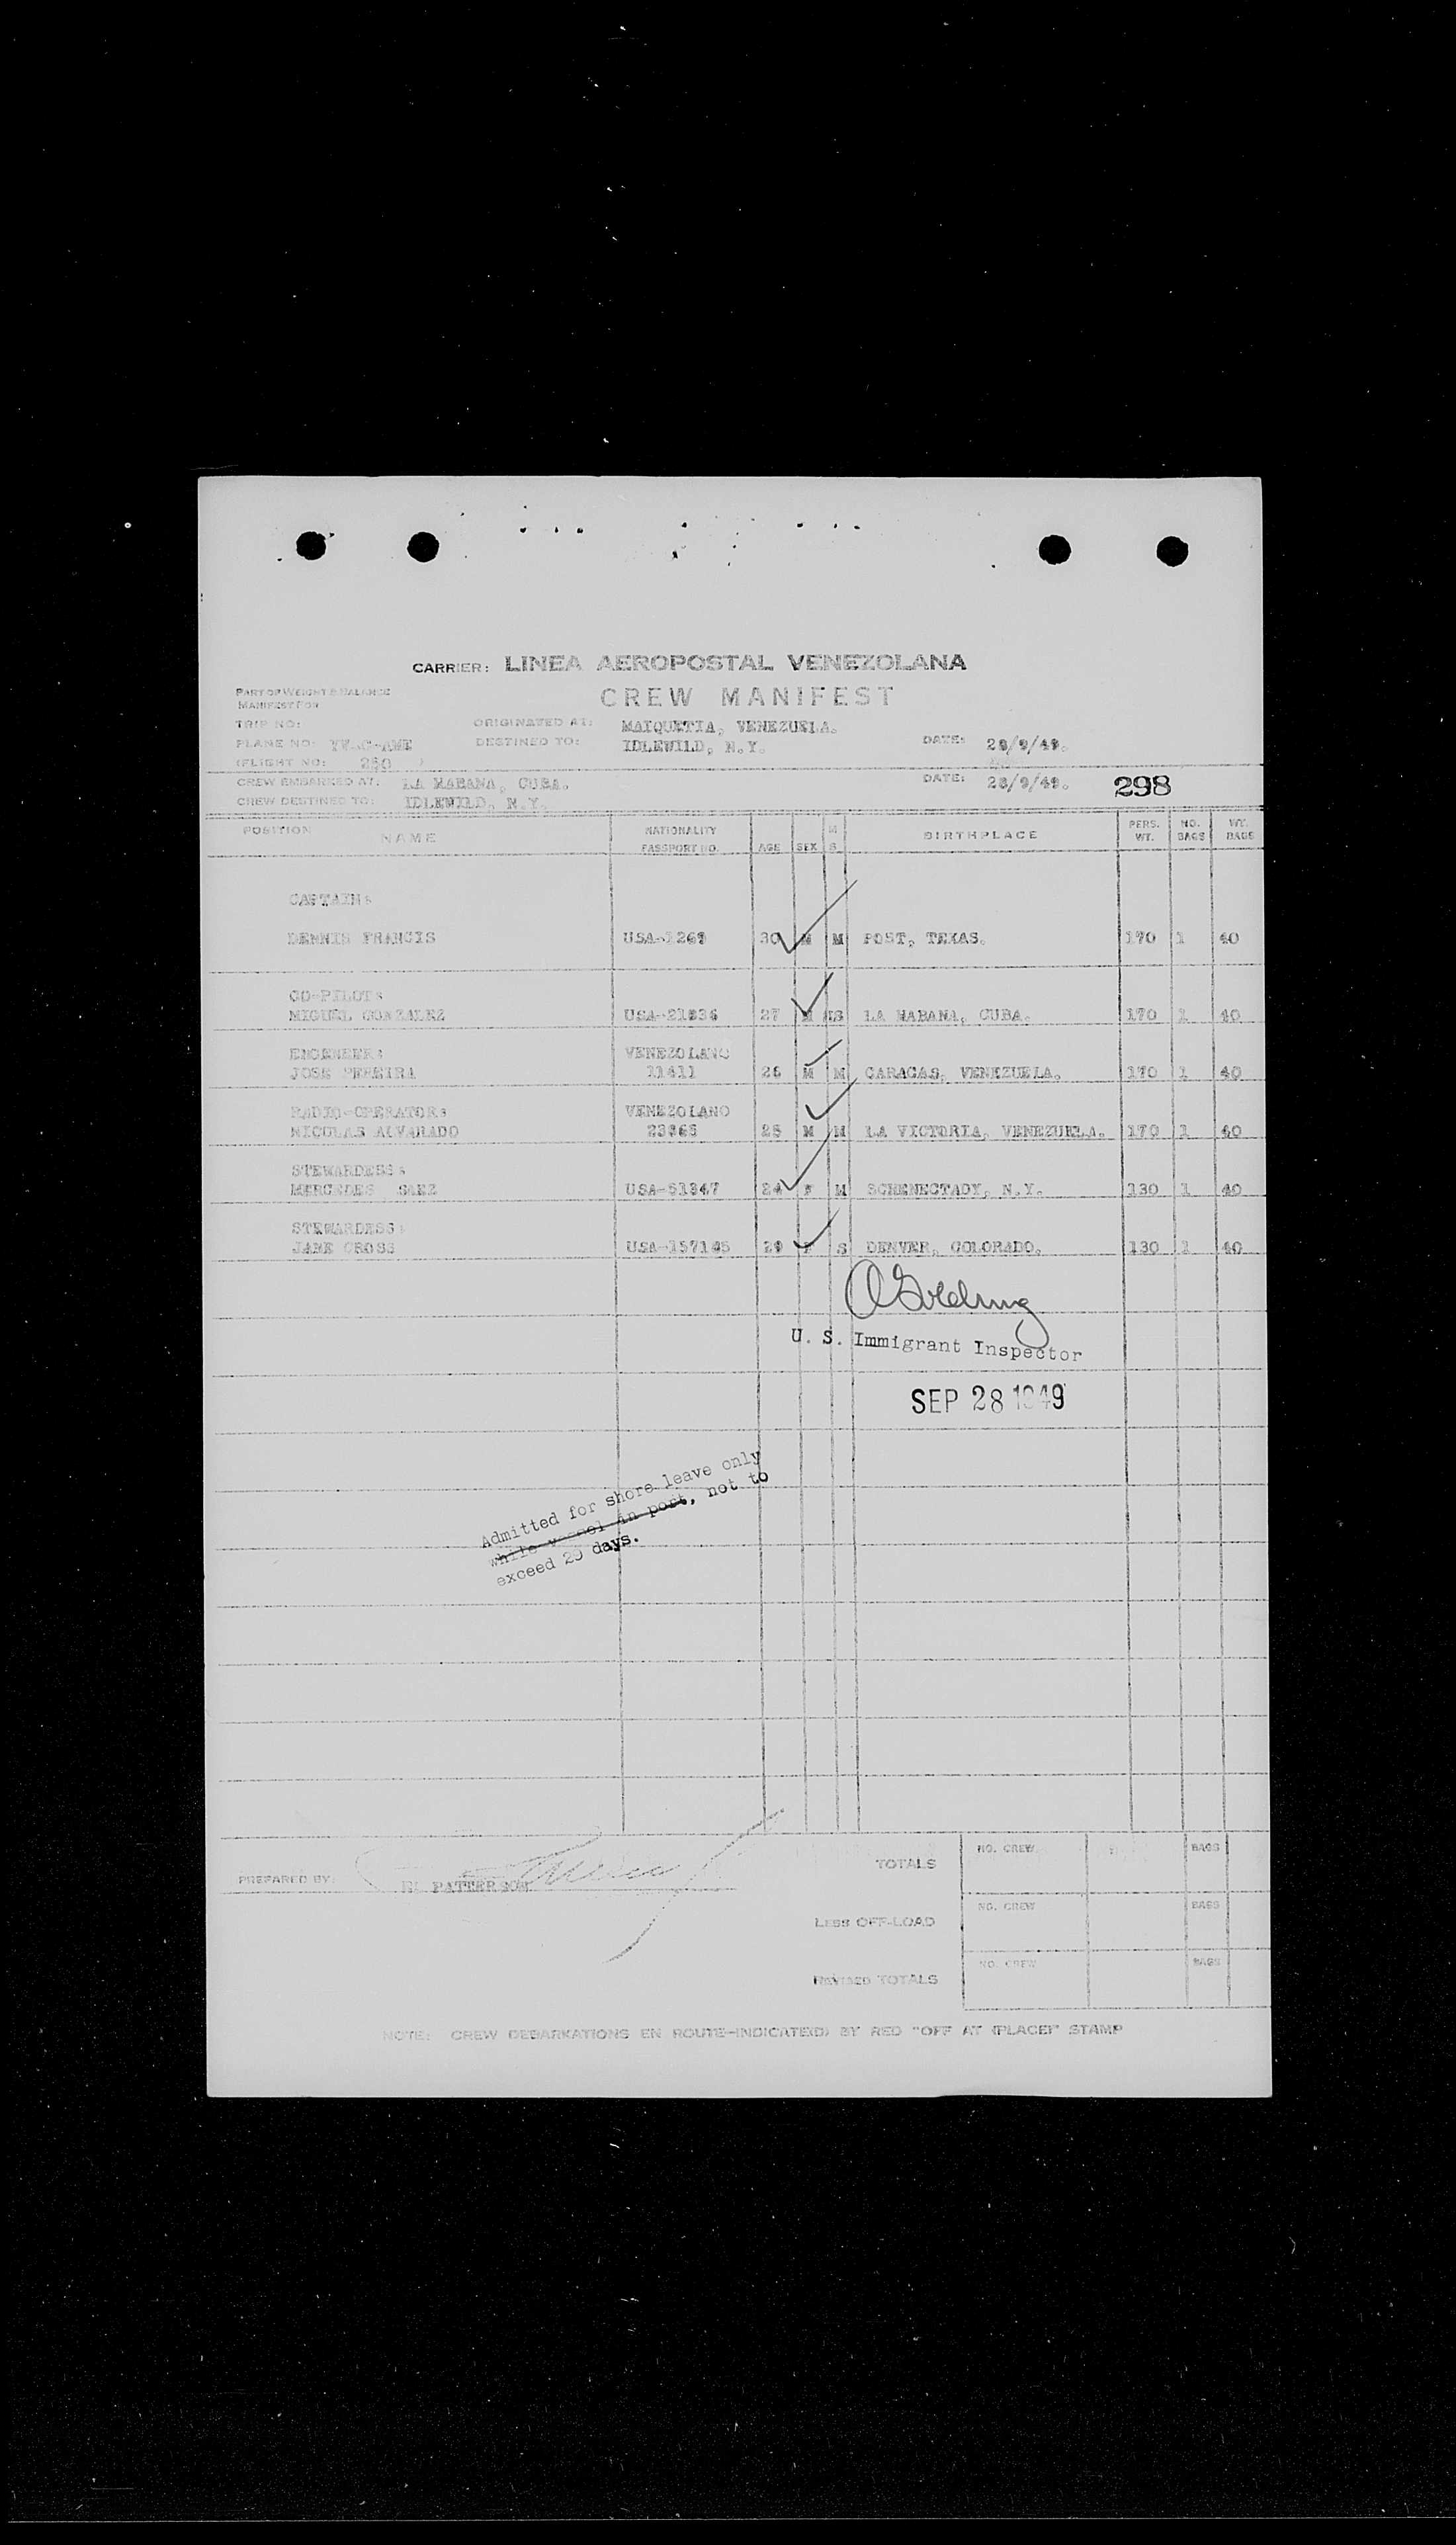 CARRIER: LINEA AEROPOSTAL VENEZOLANA
PART OF WEIGHT & BALANCE
MANIFEST FOR
CREW MANIFEST
TRIP NO:
ORIGINATED AT: MAIQUETIA, VENEZUELA.
PLANE NO: YV-C-AME
DESTINED TO: IDLEWILD, N.Y.
DATE: 28/9/49.
(FLIGHT NO: 250 )
CREW EMBARKED AT: LA HABANA, CUBA.
DATE: 28/9/49.
298
CREW DESTINED TO: IDLEWILD, N.Y.
POSITION NAME NATIONALITY PASSPORT NO. AGE SEX M S BIRTHPLACE PERS. WT. NO. BAGS WT. BAGS
CAPTAIN:
DENNIS FRANCIS USA-1269 30 M M POST, TEXAS. 170 1 40
CO-PILOT:
MIGUEL GONZALEZ USA-21836 27 M S LA HABANA, CUBA. 170 1 40
ENGENEER: VENEZOLANO
JOSE PEREIRA 11411 26 M M CARACAS, VENEZUELA. 170 1 40
RADIO-OPERATOR: VENEZOLANO
NICOLAS ALVARADO 23965 25 M M LA VICTORIA, VENEZUELA. 170 1 40
STEWARDESS:
MERCEDES SAEZ USA-51347 24 F M SCHENECTADY, N.Y. 130 1 40
STEWARDESS:
JANE CROSS USA-157185 29 F S DENVER, COLORADO. 130 1 40
U. S. Immigrant Inspector
SEP 28 1949
Admitted for shore leave only
while vessel in port, not to
exceed 29 days.
PREPARED BY: PATTERSON
TOTALS NO. CREW BAGS
LESS OFF-LOAD NO. CREW BAGS
REVISED TOTALS NO. CREW BAGS
NOTE: CREW DEBARKATIONS EN ROUTE-INDICATE(D) BY RED "OFF AT (PLACE)" STAMP